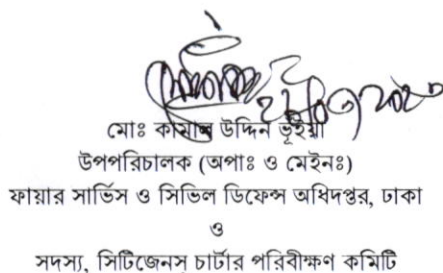 মোঃ কামাল উদ্দিন ভূঁইয়া
উপপরিচালক (অপাঃ ও মেইনঃ)
ফায়ার সার্ভিস ও সিভিল ডিফেন্স অধিদপ্তর, ঢাকা
ও
সদস্য, সিটিজেনস্ চার্টার পরিবীক্ষণ কমিটি